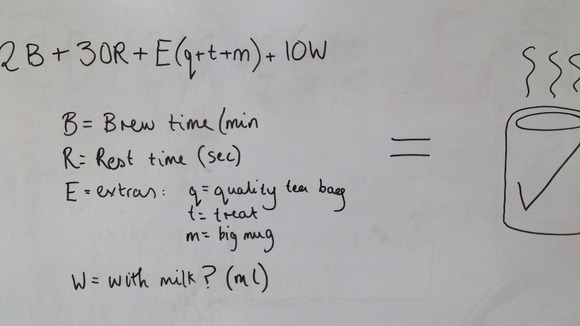 2B + 30R + E(q+t+m) + 10W
B = Brew time (min
R = Rest time (sec)
E = extras: q = quality tea bag
t = treat
m = big mug
=
W = with milk? (ml)